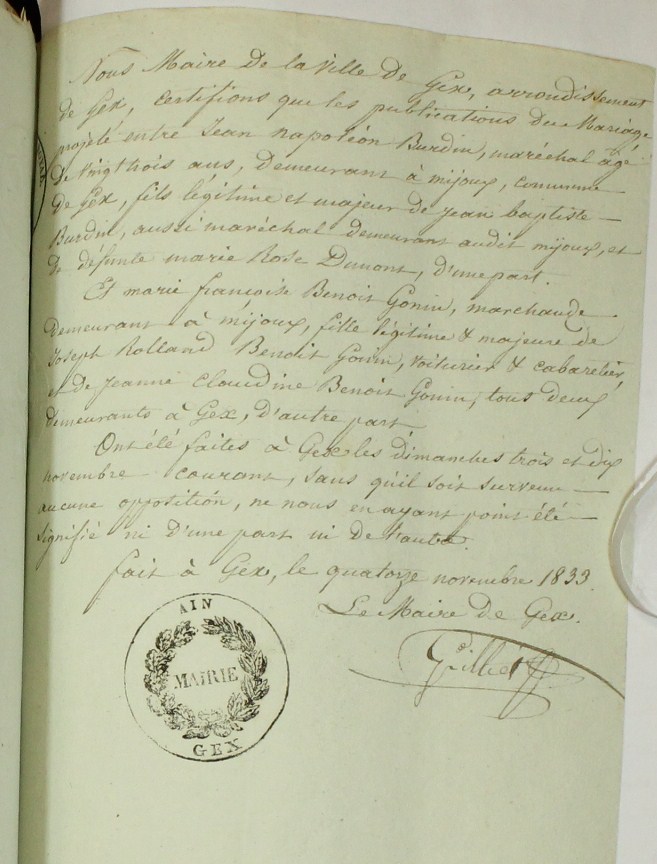 Nous Maire de la ville de Gex, arrondissement
de Gex, certifions que les publications du Mariage
projeté entre Jean napoléon Burdin, maréchal âgé
de vingt trois ans, demeurant à mijoux, commune
de Gex, fils légitime et majeur de jean baptiste
Burdin, aussi maréchal demeurant audit mijoux, et
de défunte marie Rose Dumont, d'une part.
Et marie françoise Benoit Gonin, marchande
demeurant à mijoux, fille légitime & majeure de
Joseph Rolland Benoit Gonin, voiturier & cabaretier,
et de jeanne Claudine Benoit Gonin, tous deux
demeurants à Gex, d'autre part
Ont été faites à Gex les dimanches trois et dix
novembre courant, sans qu'il soit survenu
aucune opposition, ne nous en ayant point été
signifié ni d'une part ni de l'autre.
fait à Gex, le quatorze novembre 1833.
Le Maire de Gex.
AIN
MAIRIE
GEX